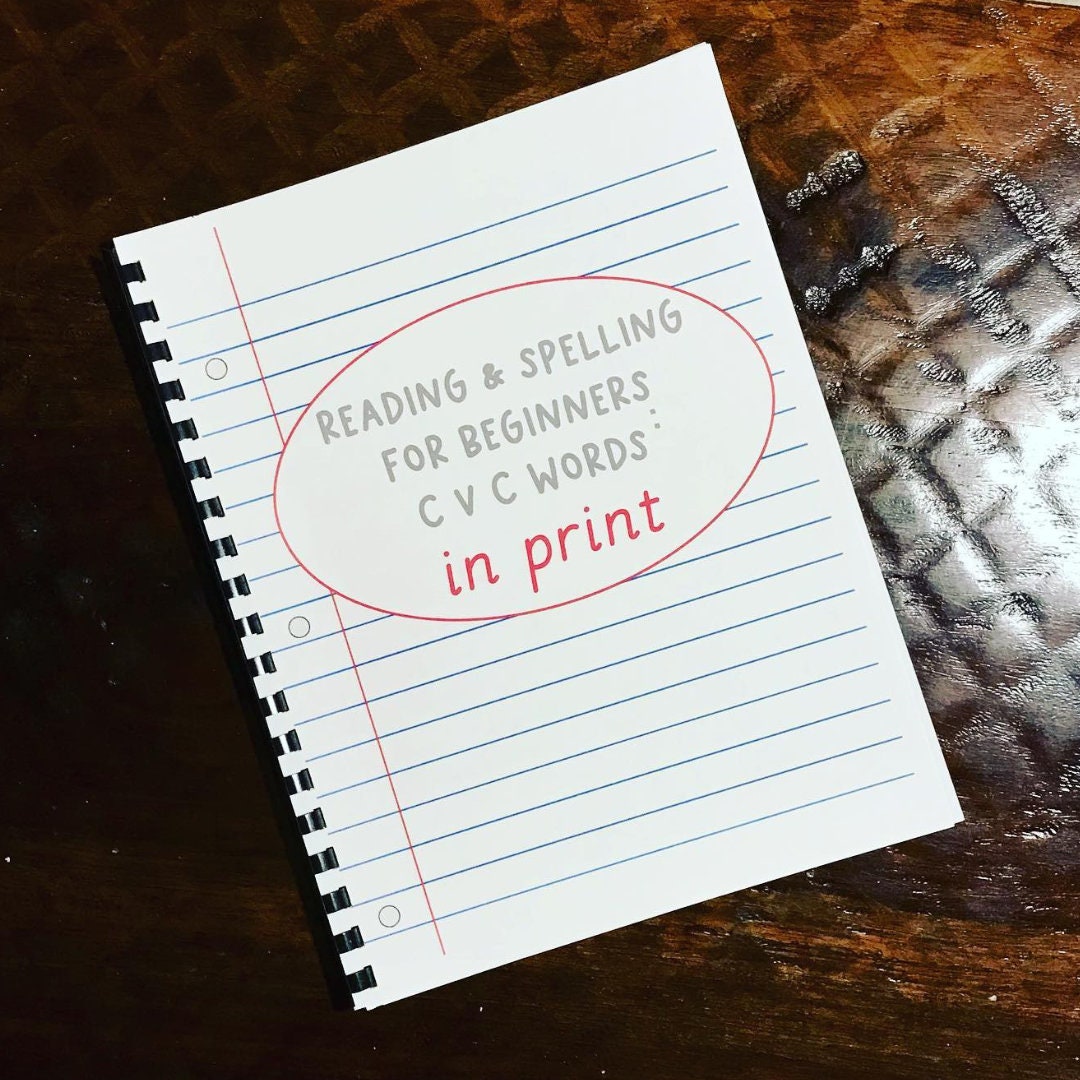 READING & SPELLING
FOR BEGINNERS
C V C WORDS:
in print